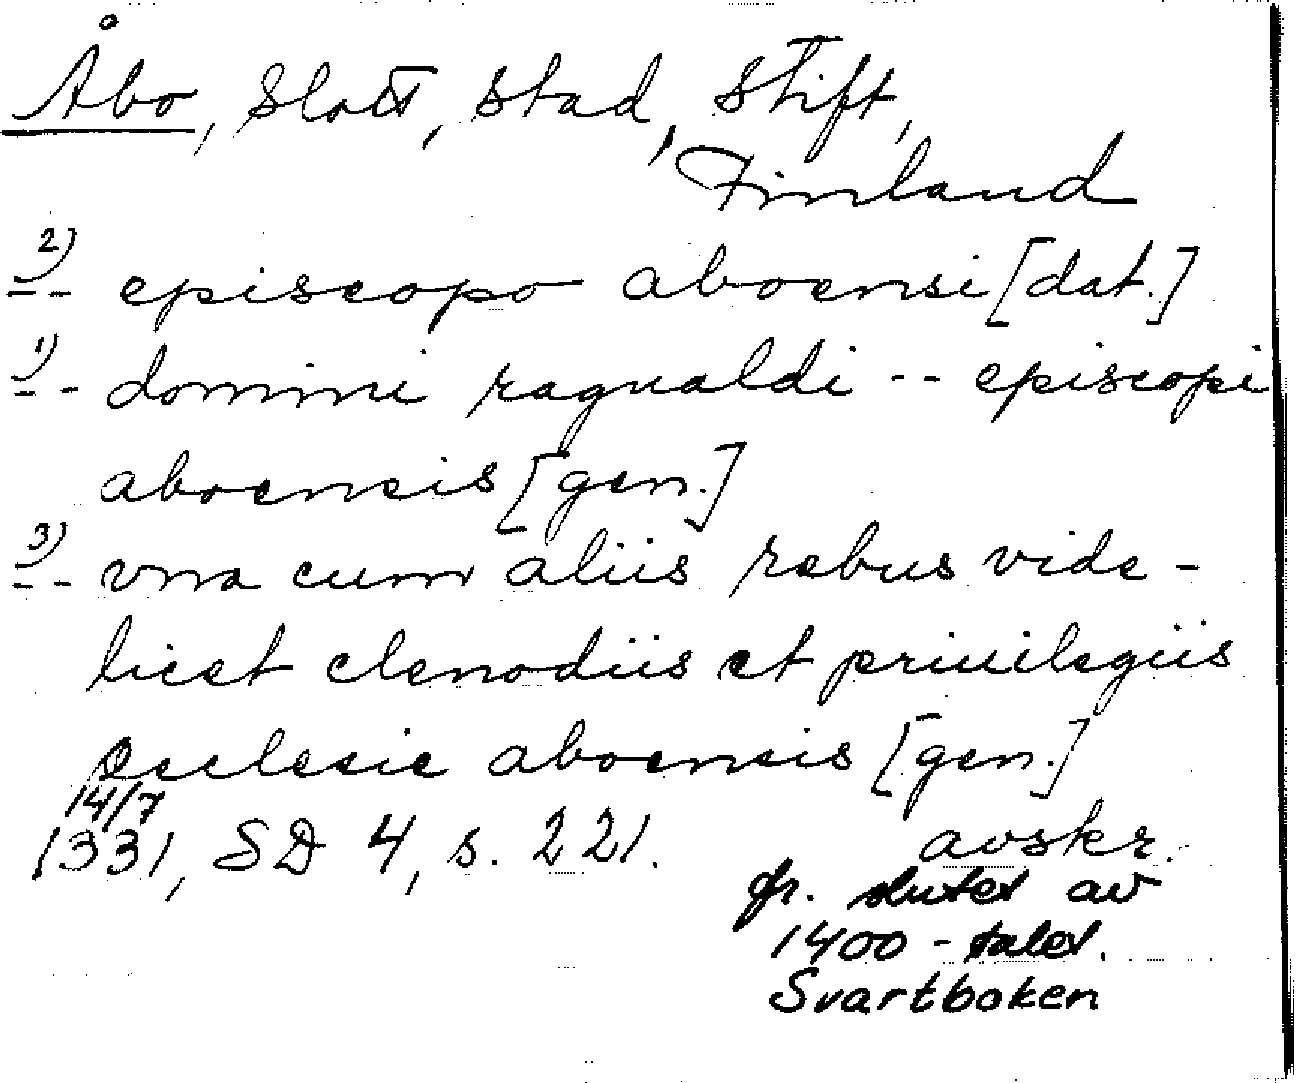 Åbo, slott, stad, stift,
Finland
2)
-- episcopo aboensi [dat.]
1)
-- domini ragualdi -- episcopi
aboensis [gen.]
3)
-- vna cum aliis rebus vide-
licet clenodiis et priuilegiis
ecclesie aboensis [gen.]
14/7
1331, SD 4, s. 221. avskr.
fr. slutet av
1400-talet.
Svartboken